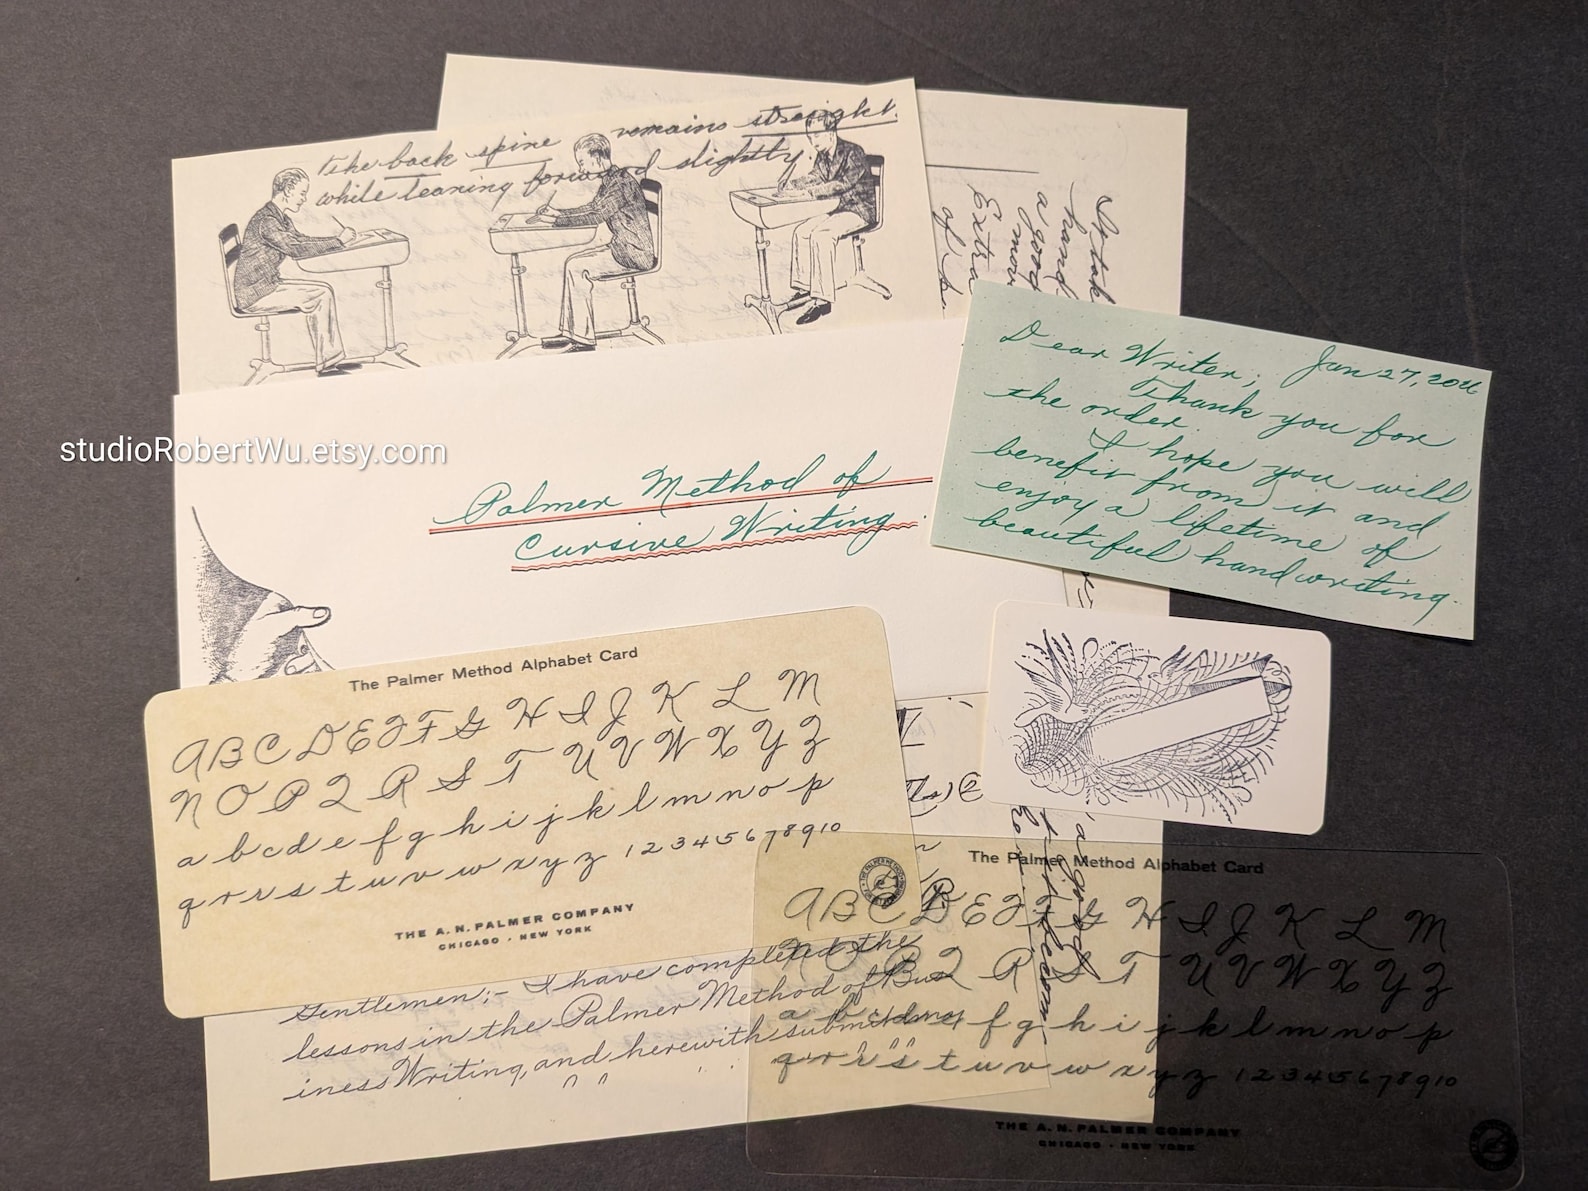 the back spine remains straight.
while leaning forward slightly.
It tak
hand
a good
more
Extra
of
Dear Writer; Jan 27,
Thank you for
the order.
I hope you will
benefit from it and
enjoy a lifetime of
beautiful handwriting.
studioRobertWu.etsy.com
Palmer Method of
Cursive Writing.
The Palmer Method Alphabet Card
A B C D E F F G H I J K L M
N O P P Q R S T U V W X Y Z
a b c d e f g h i j k l m n o p
q r r s t u v w x y z 1 2 3 4 5 6 7 8 9 10
THE A. N. PALMER COMPANY
CHICAGO · NEW YORK
Gentlemen;- I have completed the
lessons in the Palmer Method of Bus
iness Writing, and herewith submit
The Palmer Method Alphabet Card
A B C D E F F G H I J K L M
N O P Q R S T U V W X Y Z
a b c d e f g h i j k l m n o p
q r r s t u v w x y z 1 2 3 4 5 6 7 8 9 10
THE A. N. PALMER COMPANY
CHICAGO · NEW YORK